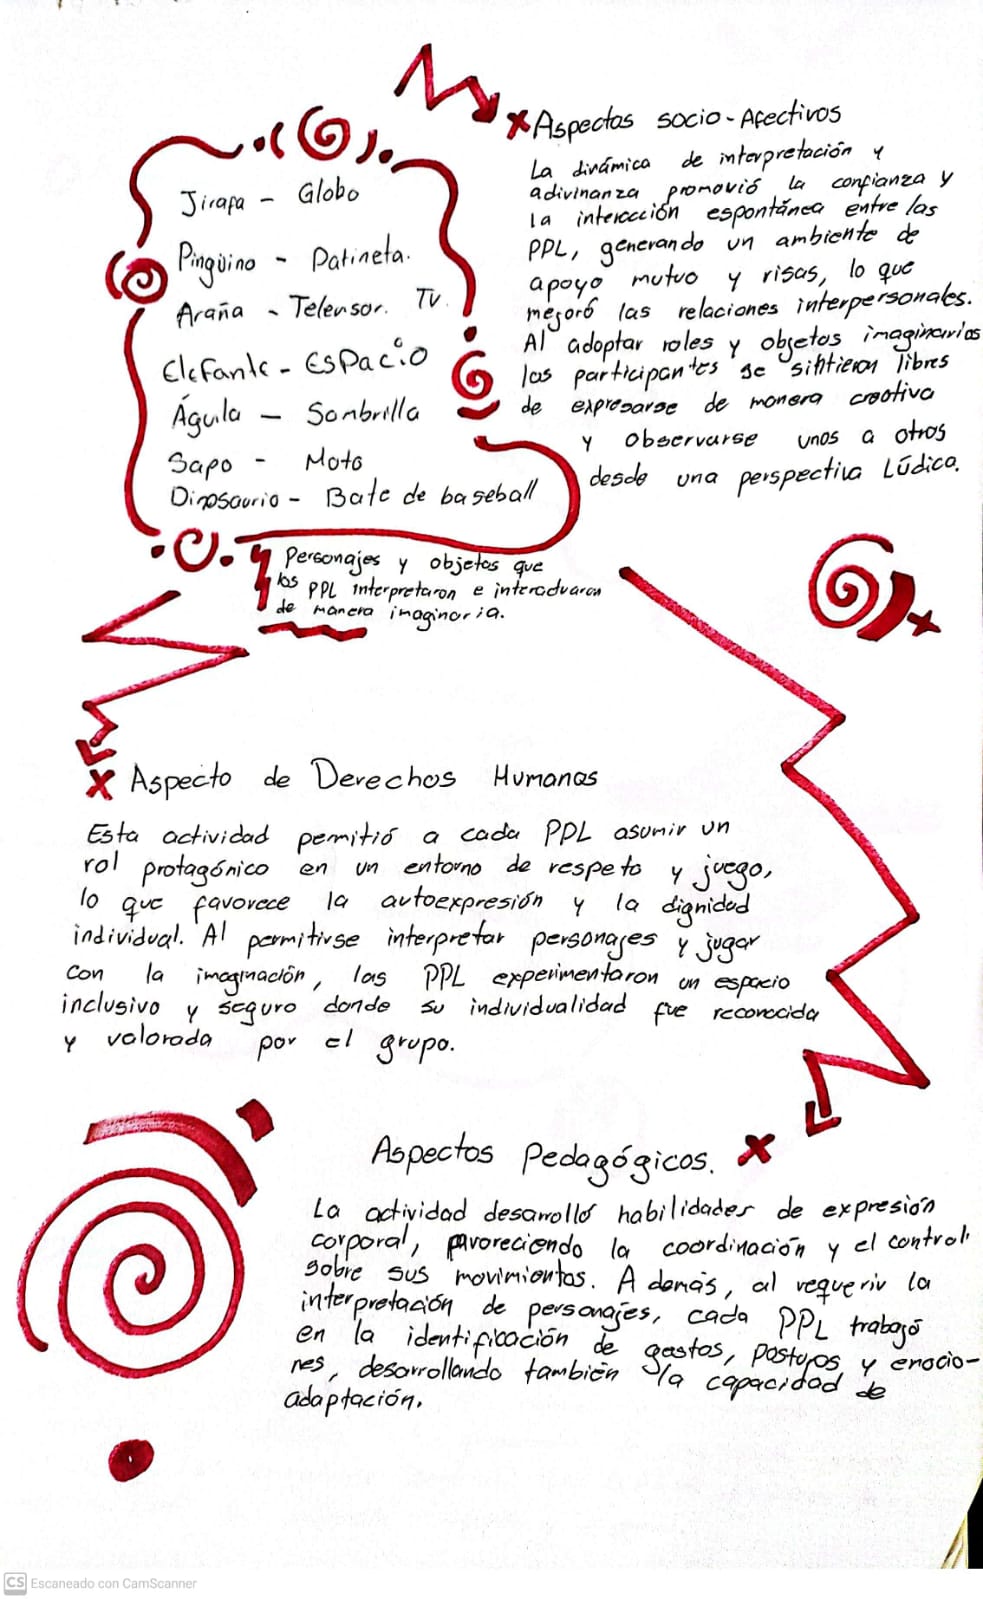 Jirapa - Globo
Pingüino - Patineta.
Araña - Televisor. TV.
Elefante - Espacio
Águila - Sombrilla
Sapo - Moto
Dinosaurio - Bate de baseball
Personajes y objetos que
las PPL interpretaron e
de manera imaginaria.
Aspectos socio-Afectivos
La dinámica de interpretación y
adivinanza promovió la confianza y
la interacción espontánea entre las
PPL, generando un ambiente de
apoyo mutuo y risas, lo que
mejoró las relaciones interpersonales.
Al adoptar roles y objetos imaginarios
las participantes se sintieron libres
de expresarse de manera creativa
y observarse unos a otros
desde una perspectiva Lúdica.
Aspecto de Derechos Humanos
Esta actividad permitió a cada PPL asumir un
rol protagónico en un entorno de respeto y juego,
lo que favorece la autoexpresión y la dignidad
individual. Al permitirse interpretar personajes y jugar
con la imaginación, las PPL experimentaron un espacio
inclusivo y seguro donde su individualidad fue reconocida
y valorada por el grupo.
Aspectos Pedagógicos.
La actividad desarrolló habilidades de expresión
corporal, favoreciendo la coordinación y el control
sobre sus movimientos. Además, al requerir la
interpretación de personajes, cada PPL trabajó
en la identificación de gestos, posturas y emocio-
nes, desarrollando también la capacidad de
adaptación.
CS Escaneado con CamScanner